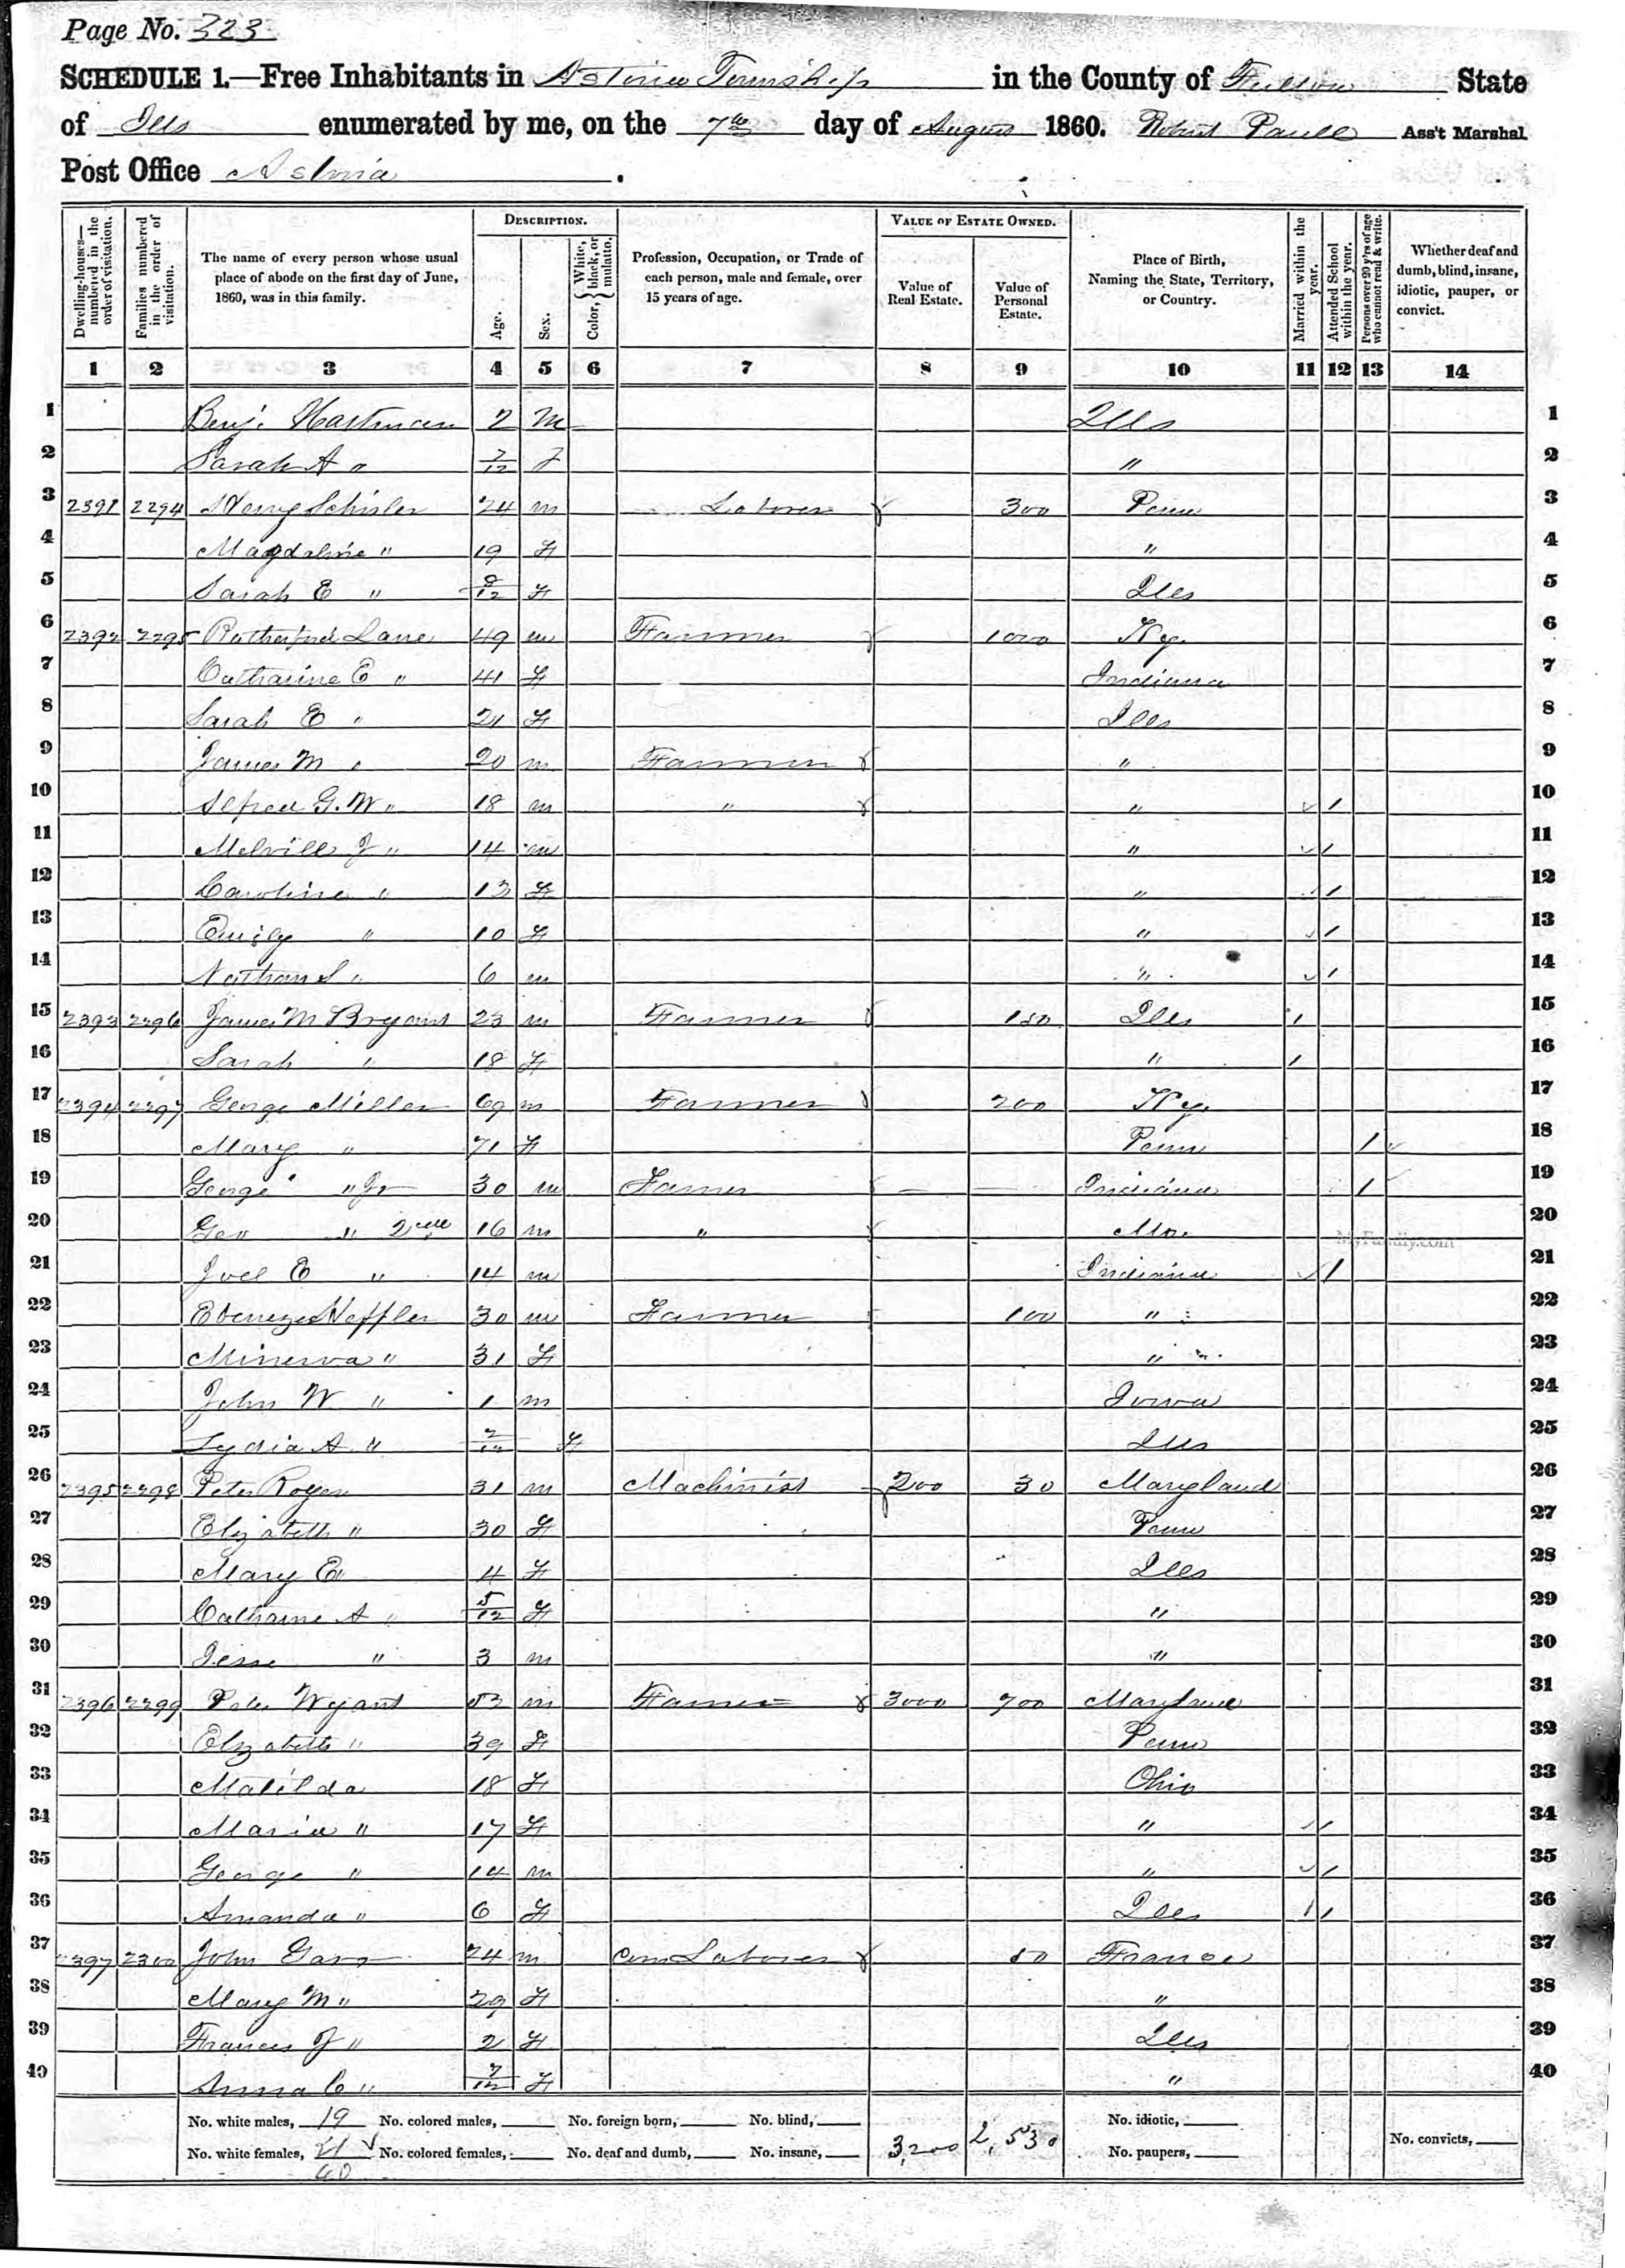 Page No. 323
SCHEDULE 1.—Free Inhabitants in Astoria Township in the County of Fulton State
of Ills enumerated by me, on the 7th day of August 1860. Robert Paull Ass't Marshal
Post Office Astoria.
DESCRIPTION. VALUE OF ESTATE OWNED.
Dwelling-houses—numbered in the order of visitation. Families numbered in the order of visitation. The name of every person whose usual place of abode on the first day of June, 1860, was in this family. Age. Sex. Color, {White, black, or mulatto. Profession, Occupation, or Trade of each person, male and female, over 15 years of age. Value of Real Estate. Value of Personal Estate. Place of Birth, Naming the State, Territory, or Country. Married within the year. Attended School within the year. Persons over 20 y'rs of age who cannot read & write. Whether deaf and dumb, blind, insane, idiotic, pauper, or convict.
1 2 3 4 5 6 7 8 9 10 11 12 13 14
1 Benj. Hartman 2 m Ills 1
2 Sarah A " 7/12 f " 2
3 2391 2294 Henry Schisler 24 m Laborer 300 Penn 3
4 Magdaline " 19 F " 4
5 Sarah E " 8/12 F Ills 5
6 2392 2295 Rutherford Lane 49 m Farmer 1000 Ky. 6
7 Catharine E " 41 F Indiana 7
8 Sarah E " 21 F Ills 8
9 James M " 20 m Farmer " 9
10 Alfred G. W " 18 m " " 1 10
11 Melvill J " 14 m " 1 11
12 Caroline " 13 F " 1 12
13 Emily " 10 F " 1 13
14 Nathan S " 6 m " 1 14
15 2393 2296 James M Bryant 23 m Farmer 150 Ills 1 15
16 Sarah " 18 F " 1 16
17 2394 2297 George Miller 69 m Farmer 200 Ky. 17
18 Mary " 71 F Penn 1 18
19 George " Jr 30 m Farmer — — Indiana 1 19
20 Geo " 2nd 16 m " Mo. 20
21 Joel E " 14 m Indiana 1 21
22 Ebenezer Heffler 30 m Farmer 100 " 22
23 Minerva " 31 F " 23
24 John W " 1 m Iowa 24
25 Lydia A " 2/12 F Ills 25
26 2395 2298 Peter Royer 31 m Machinist 200 30 Maryland 26
27 Elizabeth " 30 F Penn 27
28 Mary E " 4 F Ills 28
29 Catharine A " 5/12 F " 29
30 Jesse " 3 m " 30
31 2396 2299 Peter Wyant 53 m Farmer 3000 700 Maryland 31
32 Elizabeth " 39 F Penn 32
33 Matilda 18 F Ohio 33
34 Maria " 17 F " 1 34
35 George " 14 m " 1 35
36 Amanda " 6 F Ills 1 36
37 2397 2300 John 24 m Com Laborer 50 France 37
38 Mary M " 29 F " 38
39 Frances J " 2 F Ills 39
40 Anna C " 7/12 F " 40
No. white males, 19 No. colored males, No. foreign born, No. blind, 3,200 2,530 No. idiotic,
No. white females, 21 No. colored females, No. deaf and dumb, No. insane, No. paupers, No. convicts,
40
MyFamily.com